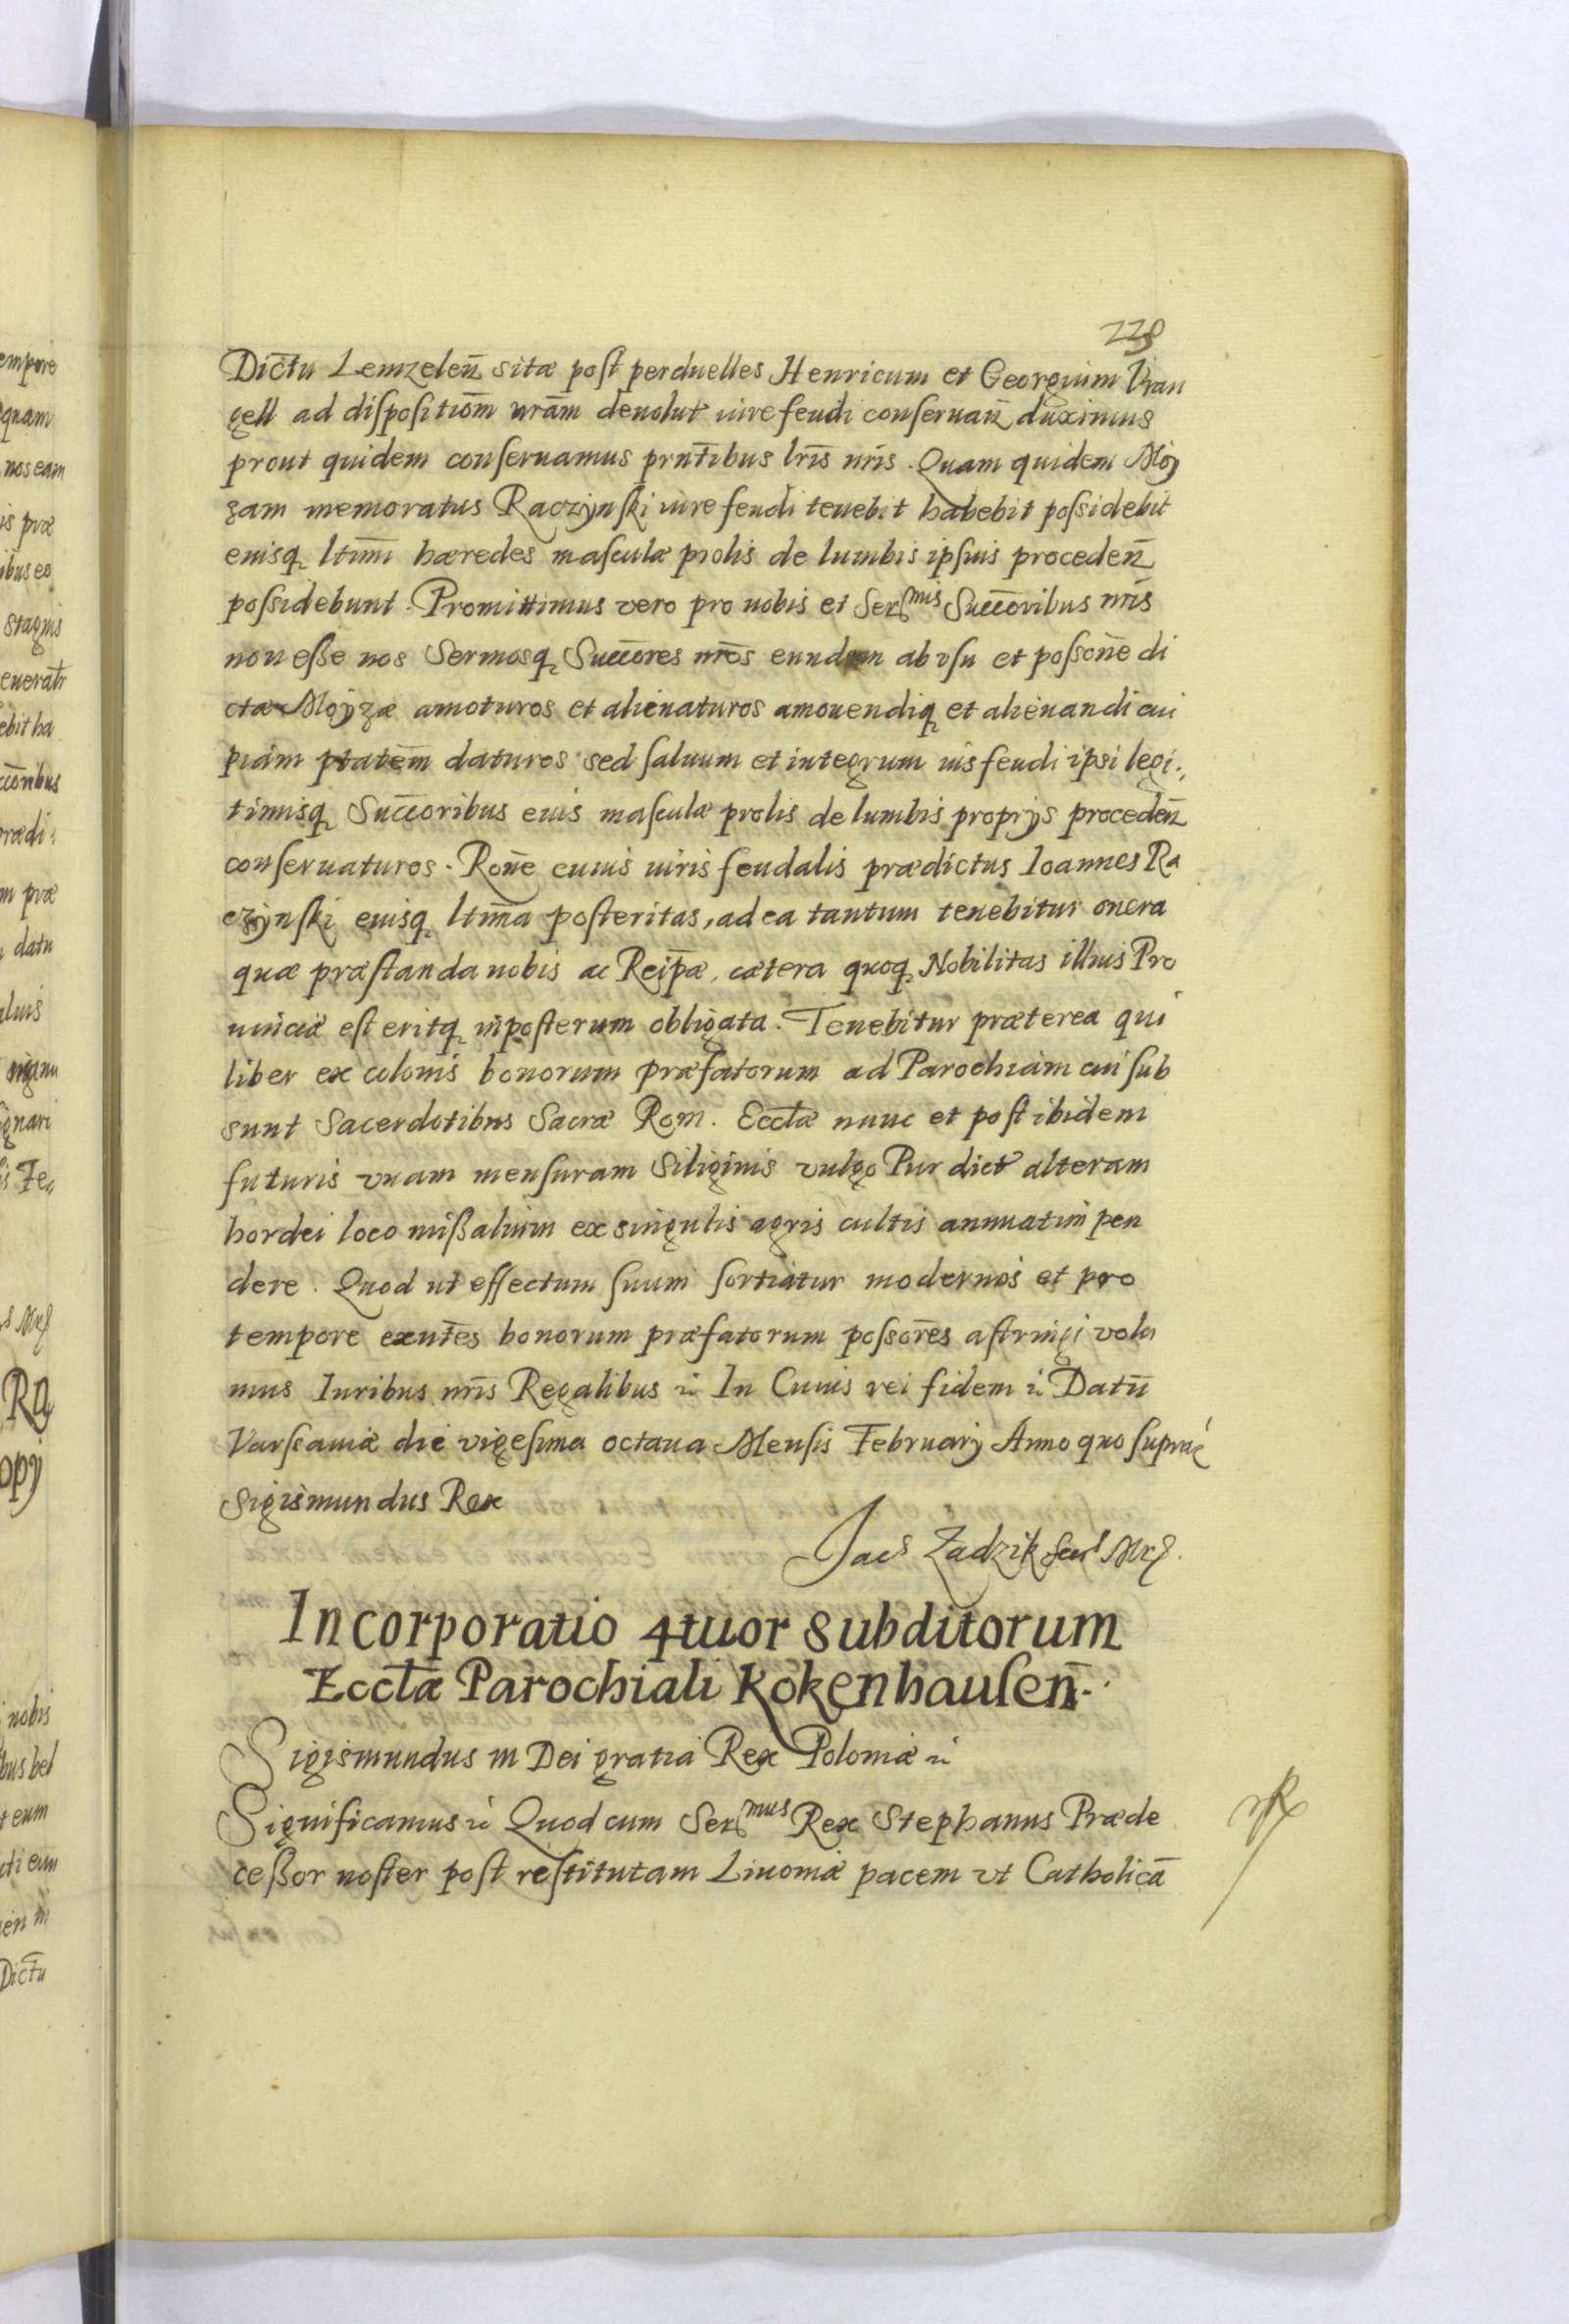 Dictu Lemzelen̄ sitæ post perduelles Henricum et Georgium Vran
gell ad dispositiom̄ nrām deuolut iure feudi conseruan̄ duximus
prout quidem conseruamus prntībus lrīs nrīs. Quam quidem Moÿ
zam memoratus Raczÿnski iure feudi tenebit habebit possidebit
eiusq ltimī hæredes masculæ prolis de lumbis ipsius proceden̄
possidebunt. Promittimus vero pro nobis et Serᵐᵘˢ Succōribus nrīs
non esse nos Sermosq Succōres nrōs eundem ab vsu et possonē di
ctæ Moÿzæ amoturos et alienaturos amouendiq et alienandi cui
piam ptatēm daturos sed saluum et integrum ius feudi ipsi legi:,
timisq Succōribus eius masculæ prolis de lumbis proprÿs proceden̄
conseruaturos. Ronē cuius iuris feudalis prædictus Ioannes Ra
czÿnski eiusq ltīma posteritas, ad ea tantum tenebitur onera
quæ præstanda nobis ac Reipæ, cætera quoq Nobilitas illius Pro
uinciæ est eritq inposterum obligata. Tenebitur præterea qui
liber ex colonis bonorum præfatorum ad Parochiam cui sub
sunt Sacerdotibus Sacræ Rom. Ecctæ nunc et post ibidem
futuris vnam mensuram Siliginis vulgo Pur dict alteram
hordei loco missalium ex singulis agris cultis annuatim pen
dere. Quod ut effectum suum sortiatur modernos et pro
tempore exntēs bonorum præfatorum possorēs astringi volu
mus Iuribus nrīs Regalibus &c In Cuius rei fidem &c Datū
Varsauiæ die vigesima octaua Mensis Februarÿ Anno quo supra
Sigismundus Rex
Jacˢ Zadzik Secˢ
Incorporatio 4tuor Subditorum
Ecctæ Parochiali Kokenhausen̄.
Sigismundus III Dei gratia Rex Poloniæ &c
Significamus &c Quod cum Serᵐᵘˢ Rex Stephanus Præde
cessor noster post restitutam Liuoniæ pacem vt Catholicā